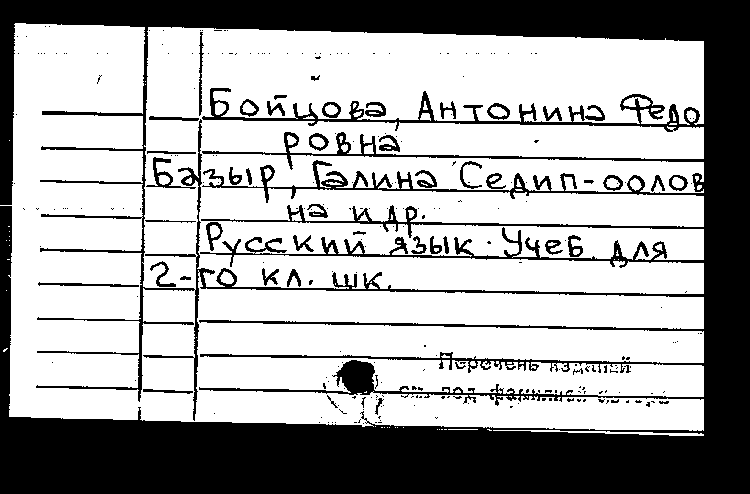 Бойцова, Антонина Федо
ровна
Базыр, Галина Седип-оолов
на и др.
Русский язык. Учеб. для
2-го кл. шк.
Перечень изданий
см. под фамилией автора